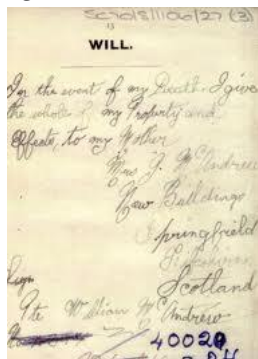 SC70/8/1106/27 (3)
13
WILL.
In the event of my Death I give
the whole of my Property and
Effects, to my Mother
Mrs G. McAndrew
New Buildings
Springfield
Scotland
Pte William McAndrew
40029